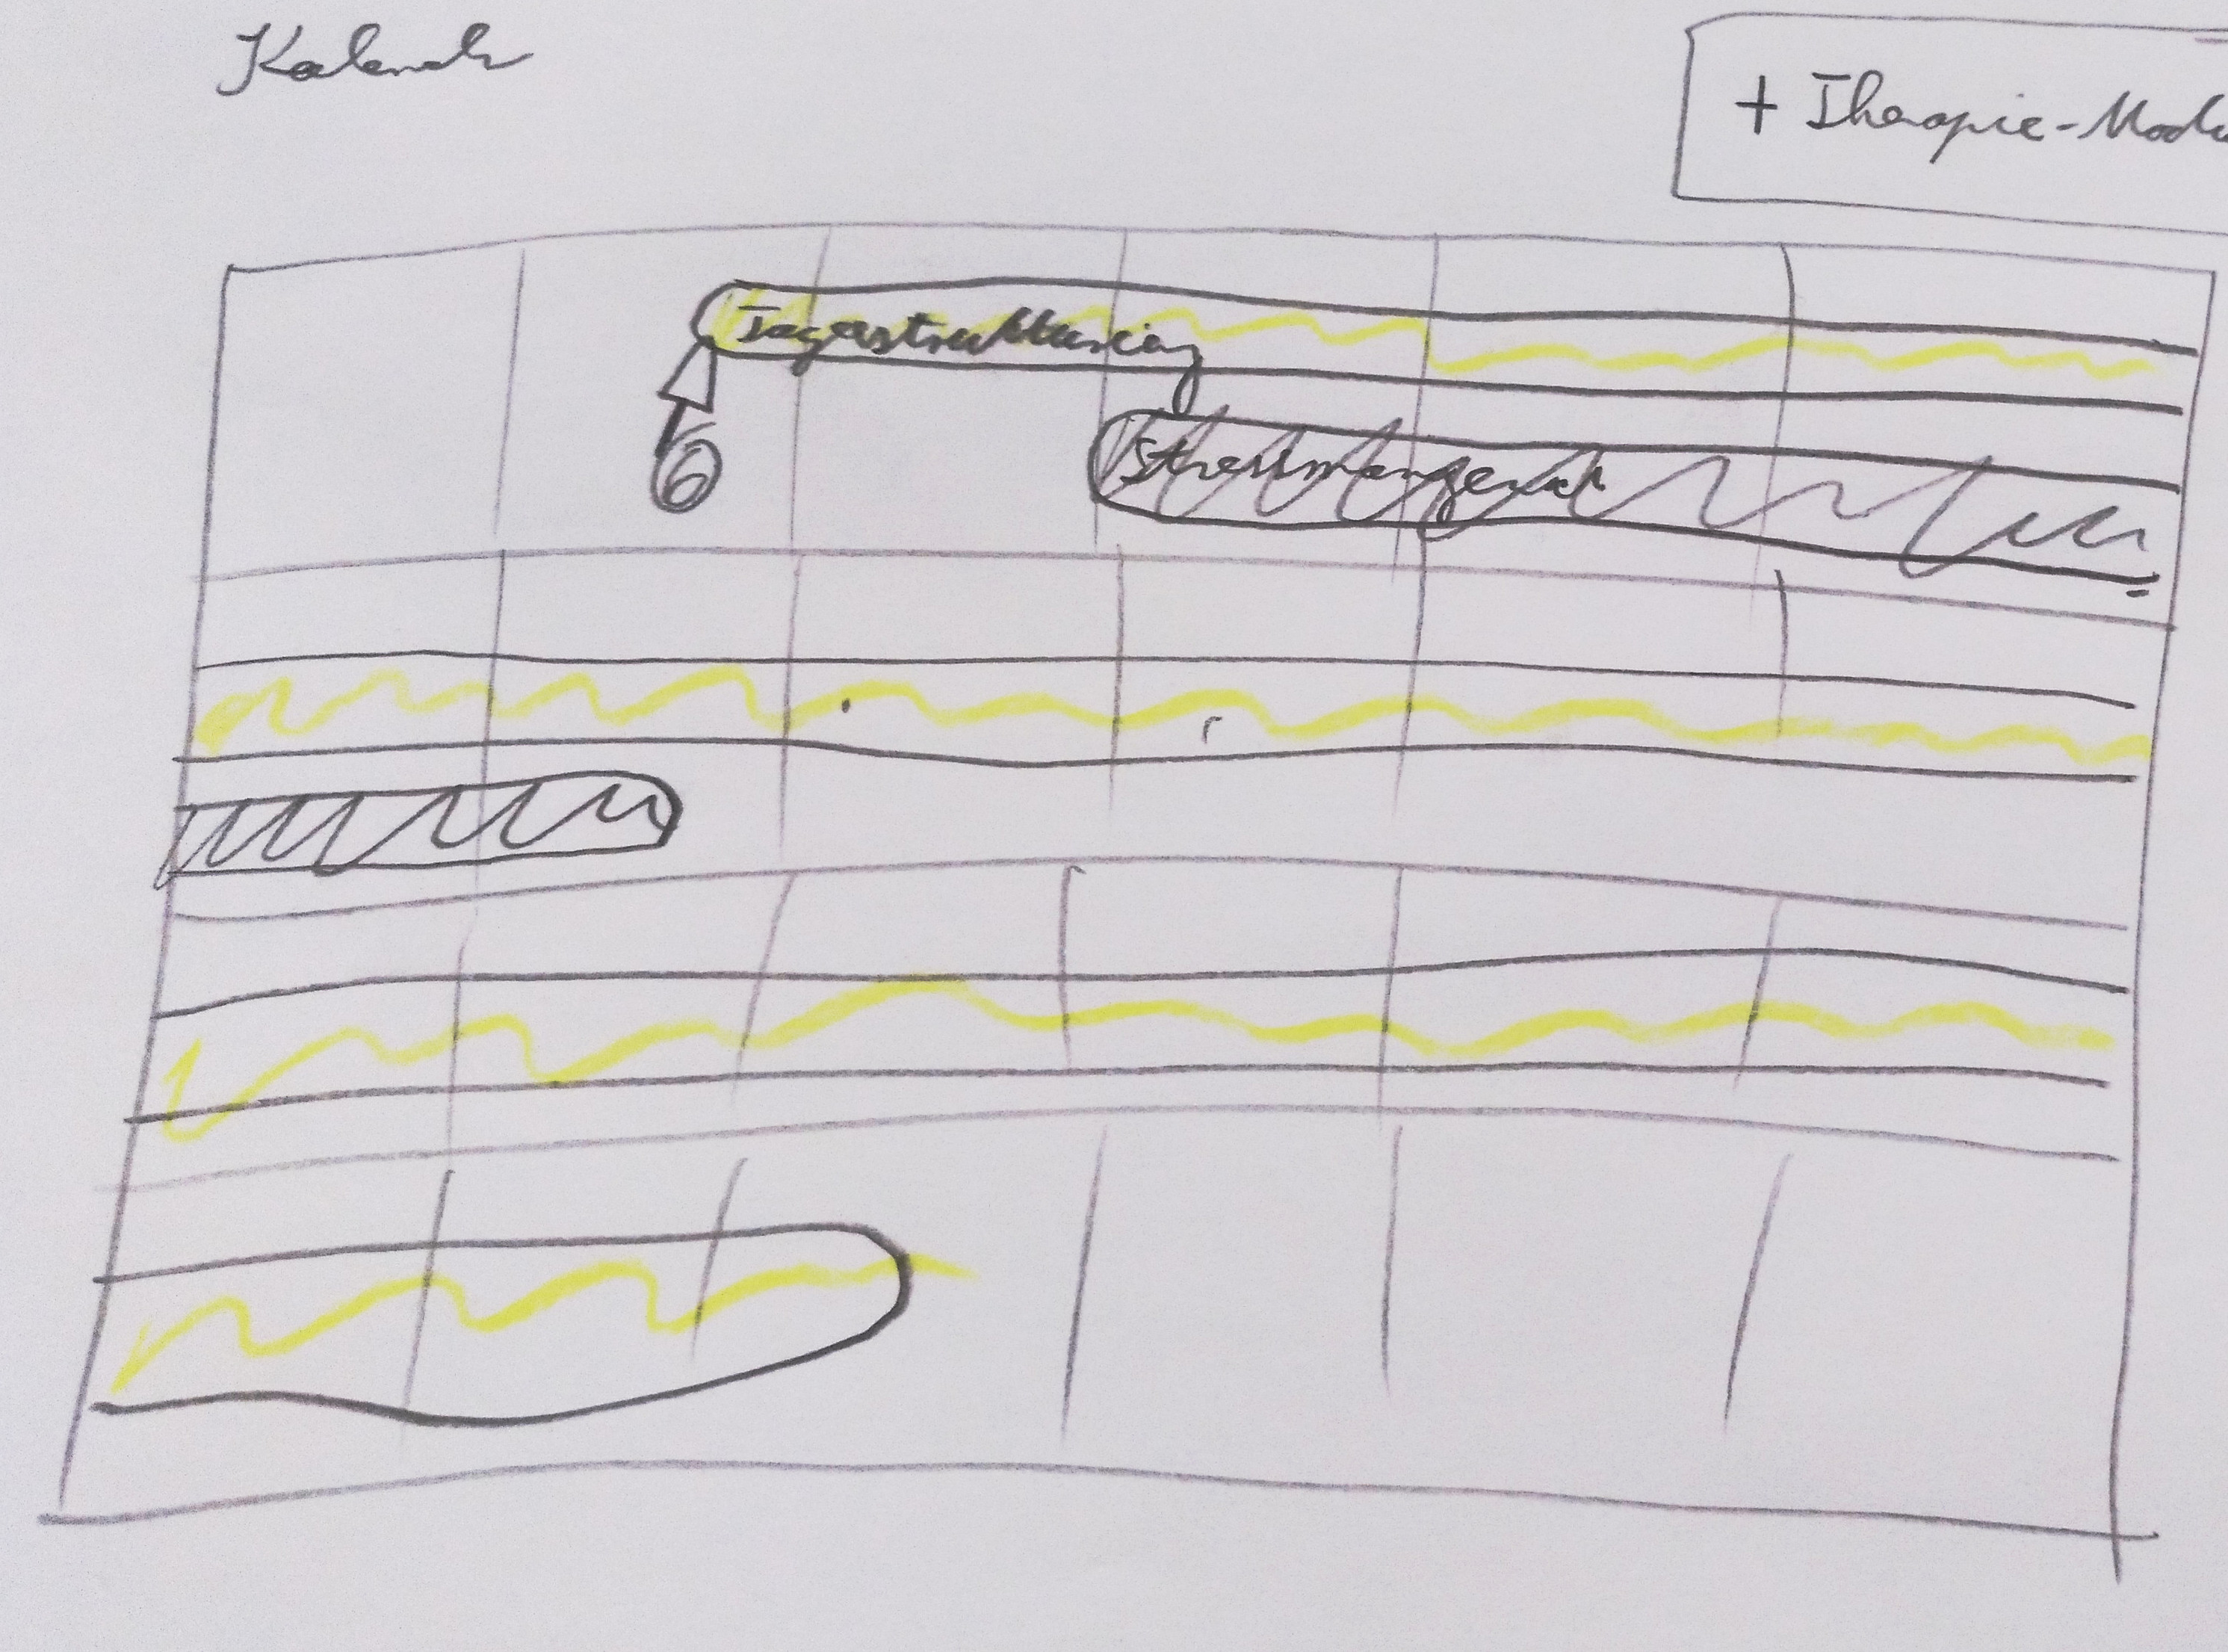 Kalender
+ Therapie-Modu
Tagesstrukturierung
Stressmanagement
6